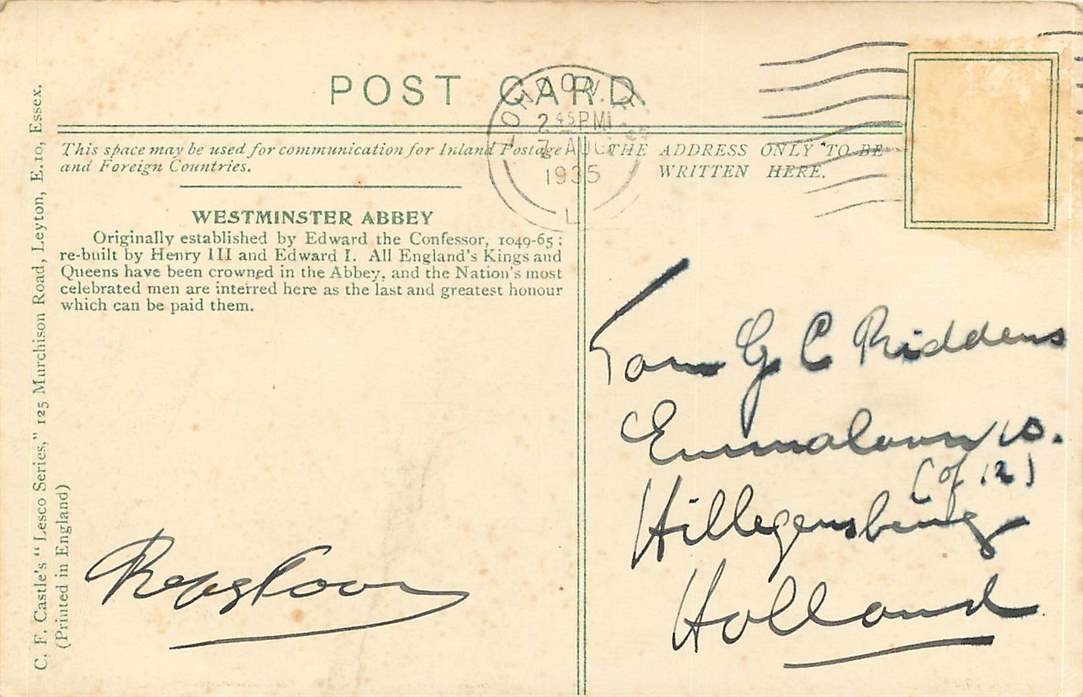 POST CARD
LONDON
2 45 PM
7 AUG
1935
This space may be used for communication for Inland Postage
and Foreign Countries.
THE ADDRESS ONLY TO BE
WRITTEN HERE.
WESTMINSTER ABBEY
Originally established by Edward the Confessor, 1049-65;
re-built by Henry III and Edward I. All England's Kings and
Queens have been crowned in the Abbey, and the Nation's most
celebrated men are interred here as the last and greatest honour
which can be paid them.
C. F. Castle's "Lesco Series," 125 Murchison Road, Leyton, E.10, Essex.
(Printed in England)
Fam G C Riddens
Emmalaan 10.
(of 12)
Hillegersberg
Holland